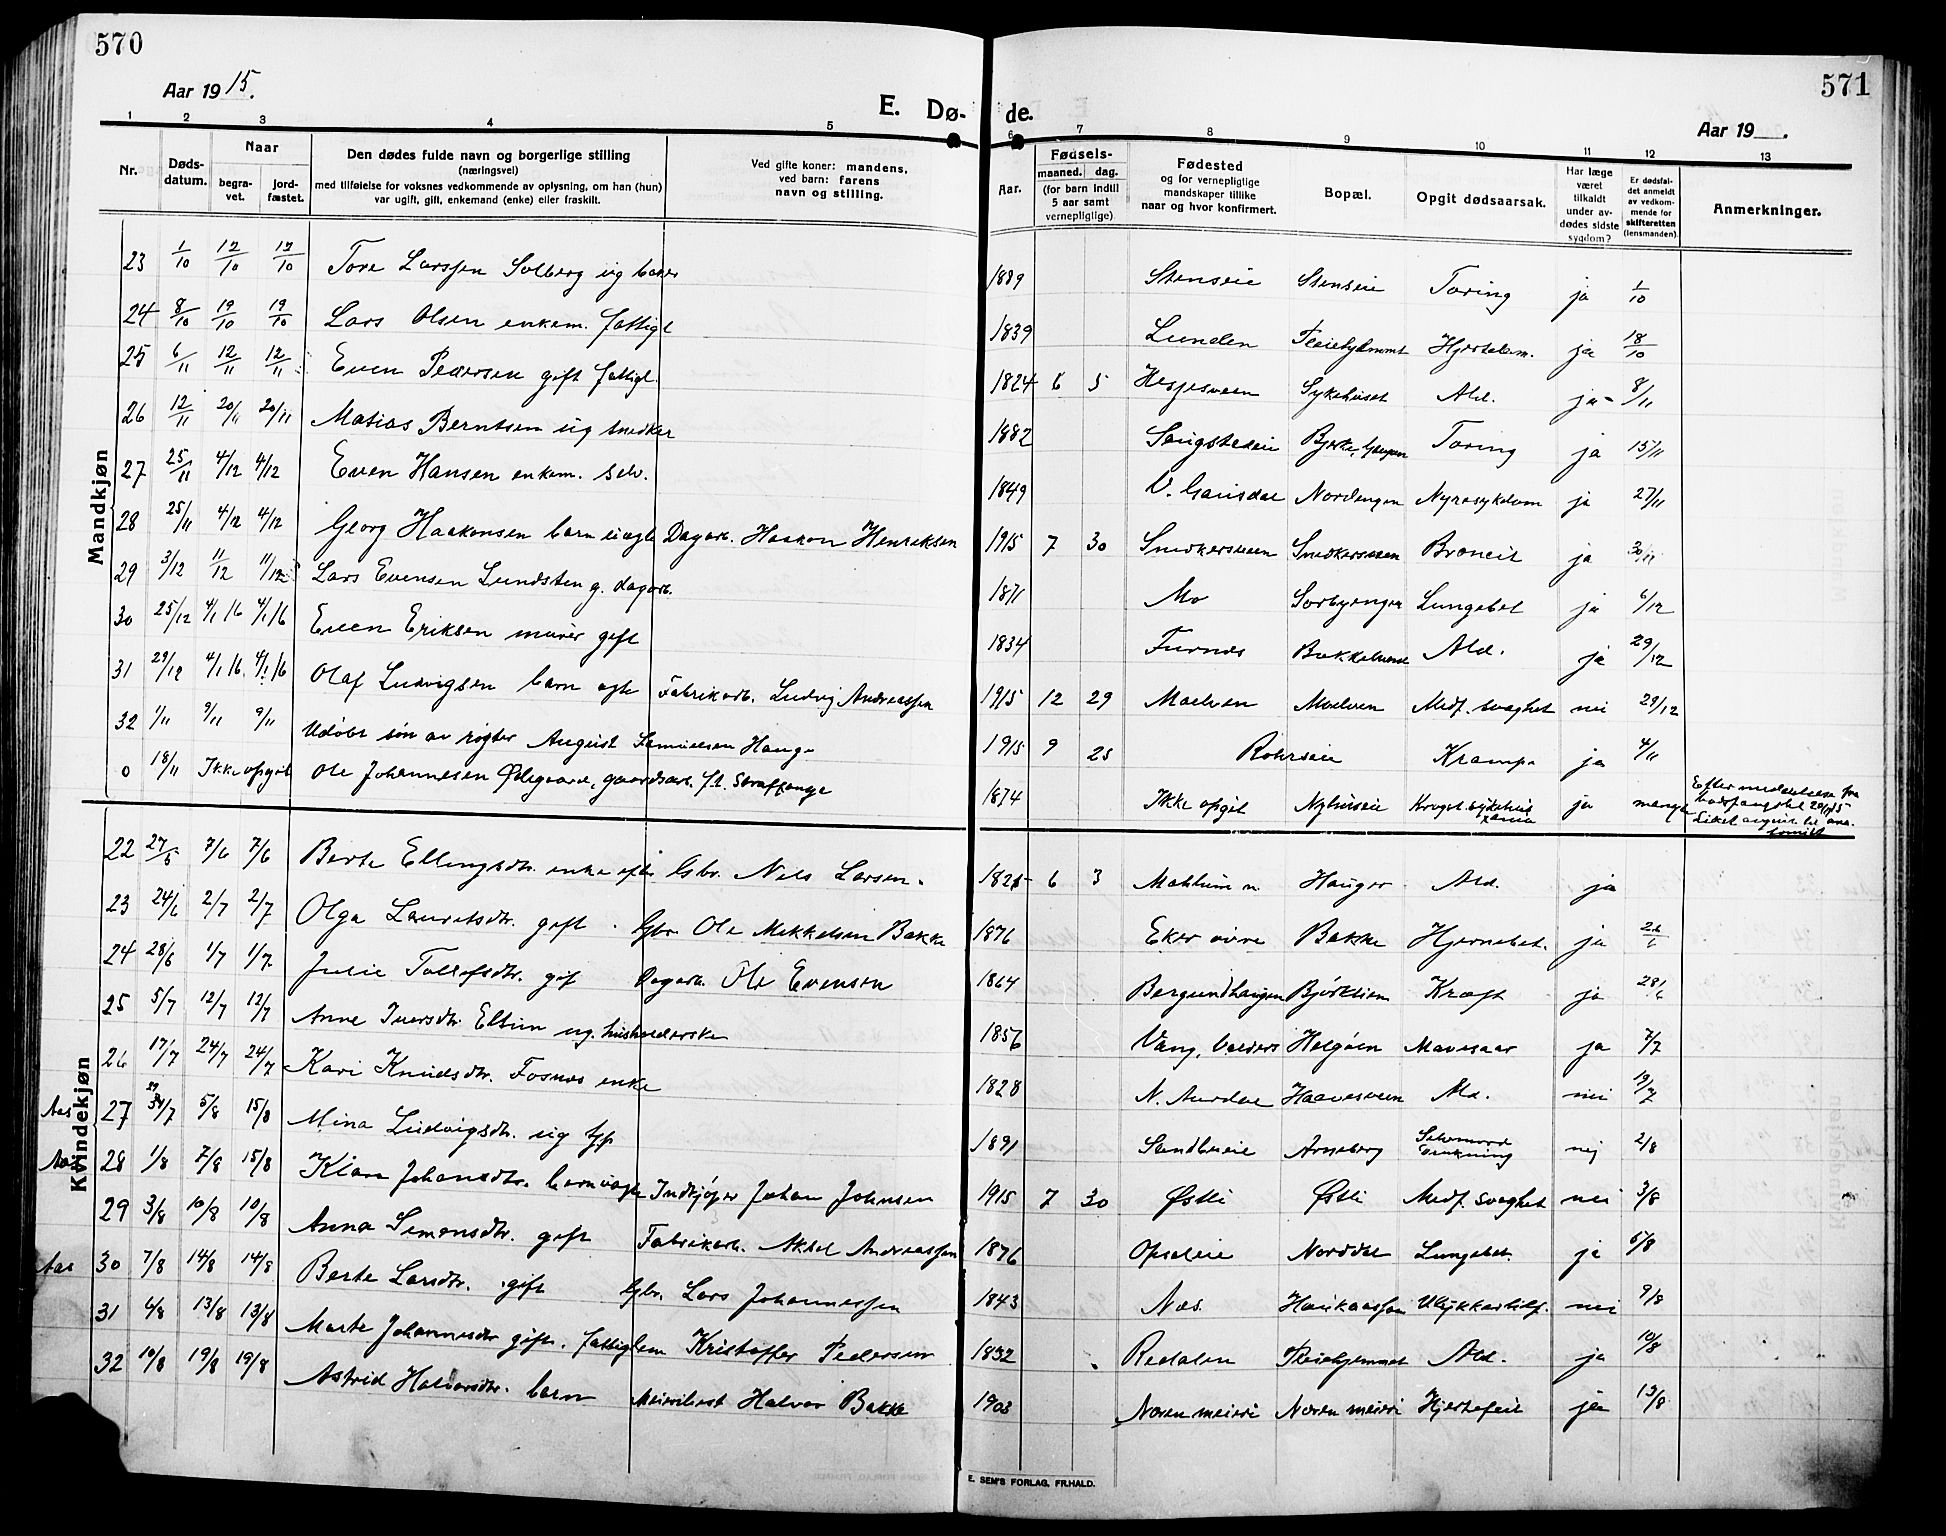 570
Aar 1915.
E. Dø-
1 2 3 4 5
Nr. Døds-datum. Naar begra-vet. jord-fæstet. Den dødes fulde navn og borgerlige stilling (næringsvei) med tilføielse for voksnes vedkommende av oplysning, om han (hun) var ugift, gift, enkemand (enke) eller fraskilt. Ved gifte koner: mandens, ved barn: farens navn og stilling.
Mandkjøn
23 1/10 12/10 12/10 Tore Larssen Solberg ug
24 8/10 19/10 19/10 Lars Olsen enkem. fattigl
25 6/11 12/11 12/11 Even Pedersen gift fattigl.
26 12/11 20/11 20/11 Matias Berntsen ug snedker
27 25/11 4/12 4/12 Even Hansen enkem. selv.
28 25/11 4/12 4/12 Georg Haakonsen barn uegte Dagarb. Haakon Henriksen
29 3/12 11/12 11/12 Lars Evensen Lundsten g. dagarb.
30 25/12 4/1 16 4/1 16 Even Eriksen murer gift
31 29/12 4/1 16. 4/1 16 Olaf Ludvigsen barn egte Fabrikarb. Ludvig Andreassen
32 1/11 9/11 9/11 Udøbt søn av røgter August Samuelsen Hauge
0 18/11 Ikke opgit Ole Johannesen Ødegaard, gaardsarb. f.t. Straffange
Kvindekjøn
22 27/5 7/6 7/6 Berte Ellingsdtr. enke efter Gbr. Nils Larsen.
23 24/6 2/7 2/7 Olga Lauritsdtr. gift. Gbr. Ole Mikkelsen Bakke
24 28/6 1/7 1/7. Julie Tollefsdtr. gif Dagarb. Ole Evensen
25 5/7 12/7 12/7 Anne Iversdtr Eltun ug. husholderske
26 17/7 24/7 24/7 Kari Knudsdtr. Fosnes enke
Aas 27 /7 5/8 15/8 Mina Ludvigsdtr. ug
Aas 28 1/8 7/8 15/8 Klara Johansdtr. barn uegte Indkjøper Johan Johnsen
29 3/8 10/8 10/8 Anna Simensdtr. gift Fabrikarb. Aksel Andreassen
Aas 30 7/8 14/8 14/8 Berte Larsdtr. gift Gbr. Lars Johannessen
31 6/8 13/8 13/8 Marte Johannesdtr gift. fattiglem Kristoffer Pedersen
32 10/8 19/8 19/8 Astrid Halvorsdtr. barn Meieribest Halvor Bakke
571
de.
Aar 19 .
6 7 8 9 10 11 12 13
Aar. Fødsels- maaned. dag. (for barn indtil 5 aar samt vernepligtige) Fødested og for vernepligtige mandskaper tillike naar og hvor konfirmert. Bopæl. Opgit dødsaarsak. Har læge været tilkaldt under av-dødes sidste sygdom? Er dødsfal-det anmeldt av vedkom-mende for skifteretten (lensmanden). Anmerkninger.
1889 Stenseie Stenseie Tæring ja 1/10
1839 Lunden Pleiehjemmet Hjertelam. ja 18/10
1824 6 5 Hesjesveen Sykehuset Ald. ja 8/11
1882 Saugstadeie Tæring ja 15/11
1849 V. Gausdal Nordengen Nyresykdom ja 27/11
1915 7 30 Snedkersveen Snedkersveen Bronkit ja 30/11
1871 Mo Sorbyengen Lungebet ja 6/12
1834 Furnes Bakkelunde Ald. ja 29/12
1915 12 29 Moelven Moelven Medf. svaghet nei 29/12
1915 9 25 Rohrseie Krampe ja 4/11
1874 Ikke opgit Nyhuseie Kragst. sykehus ja mangle Efter meddelelse fra botsfængslet 20/11 15 Liket avgivet til anatomiet
1825 6 3 Mæhlum n. Hauger Ald. ja
1876 Eker øvre Bakke Hjernebet. ja 26/6
1864 Bergundhaugen Bjørklien Kræft ja 28/6
1856 Vang, Valders Helgøen Mavesaar ja 7/7
1828 N. Aurdal Haavesveen Ald. nei 19/7
1891 Sandbueie Arneberg Selvmord drukning nej 2/8
1915 7 30 Østli Østli Medf. svaghet nei 3/8
1876 Opsaleie Norddal Lungebet. ja 5/8
1843 Næs. Haukaassen Ulykkestilf. nei 9/8
1832 Redalen Pleiehjemmet Ald. ja 10/8
1903 Næren meieri Næren meieri Hjertefeil ja 13/8
E. SEM'S FORLAG, FR.HALD.